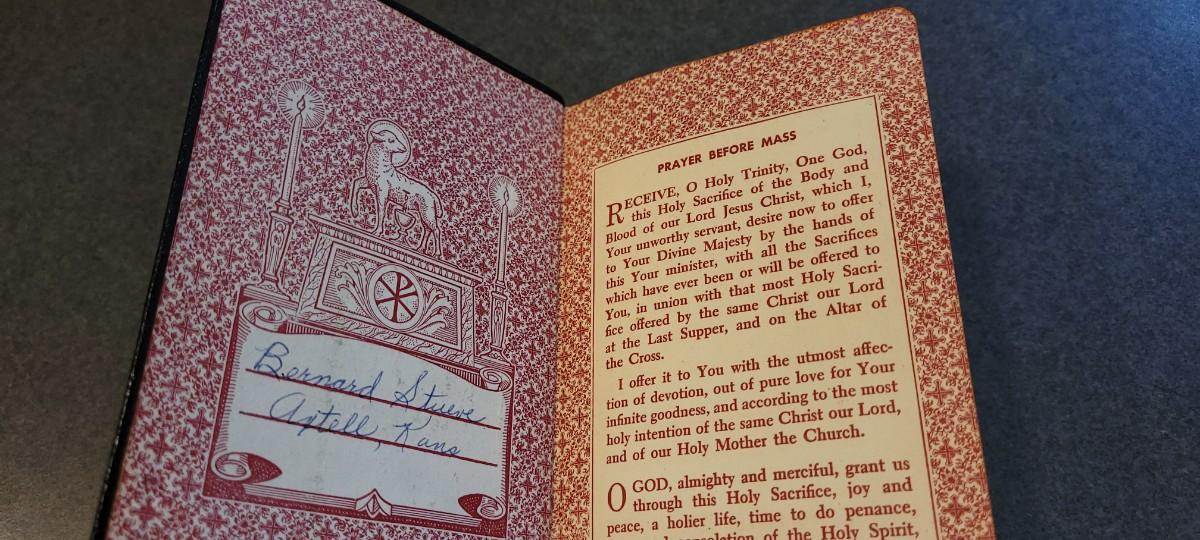 Bernard Stueve
Axtell, Kans
PRAYER BEFORE MASS
RECEIVE, O Holy Trinity, One God,
this Holy Sacrifice of the Body and
Blood of our Lord Jesus Christ, which I,
Your unworthy servant, desire now to offer
to Your Divine Majesty by the hands of
this Your minister, with all the Sacrifices
which have ever been or will be offered to
You, in union with that most Holy Sacri-
fice offered by the same Christ our Lord
at the Last Supper, and on the Altar of
the Cross.
I offer it to You with the utmost affec-
tion of devotion, out of pure love for Your
infinite goodness, and according to the most
holy intention of the same Christ our Lord,
and of our Holy Mother the Church.
O GOD, almighty and merciful, grant us
through this Holy Sacrifice, joy and
peace, a holier life, time to do penance,
consolation of the Holy Spirit,